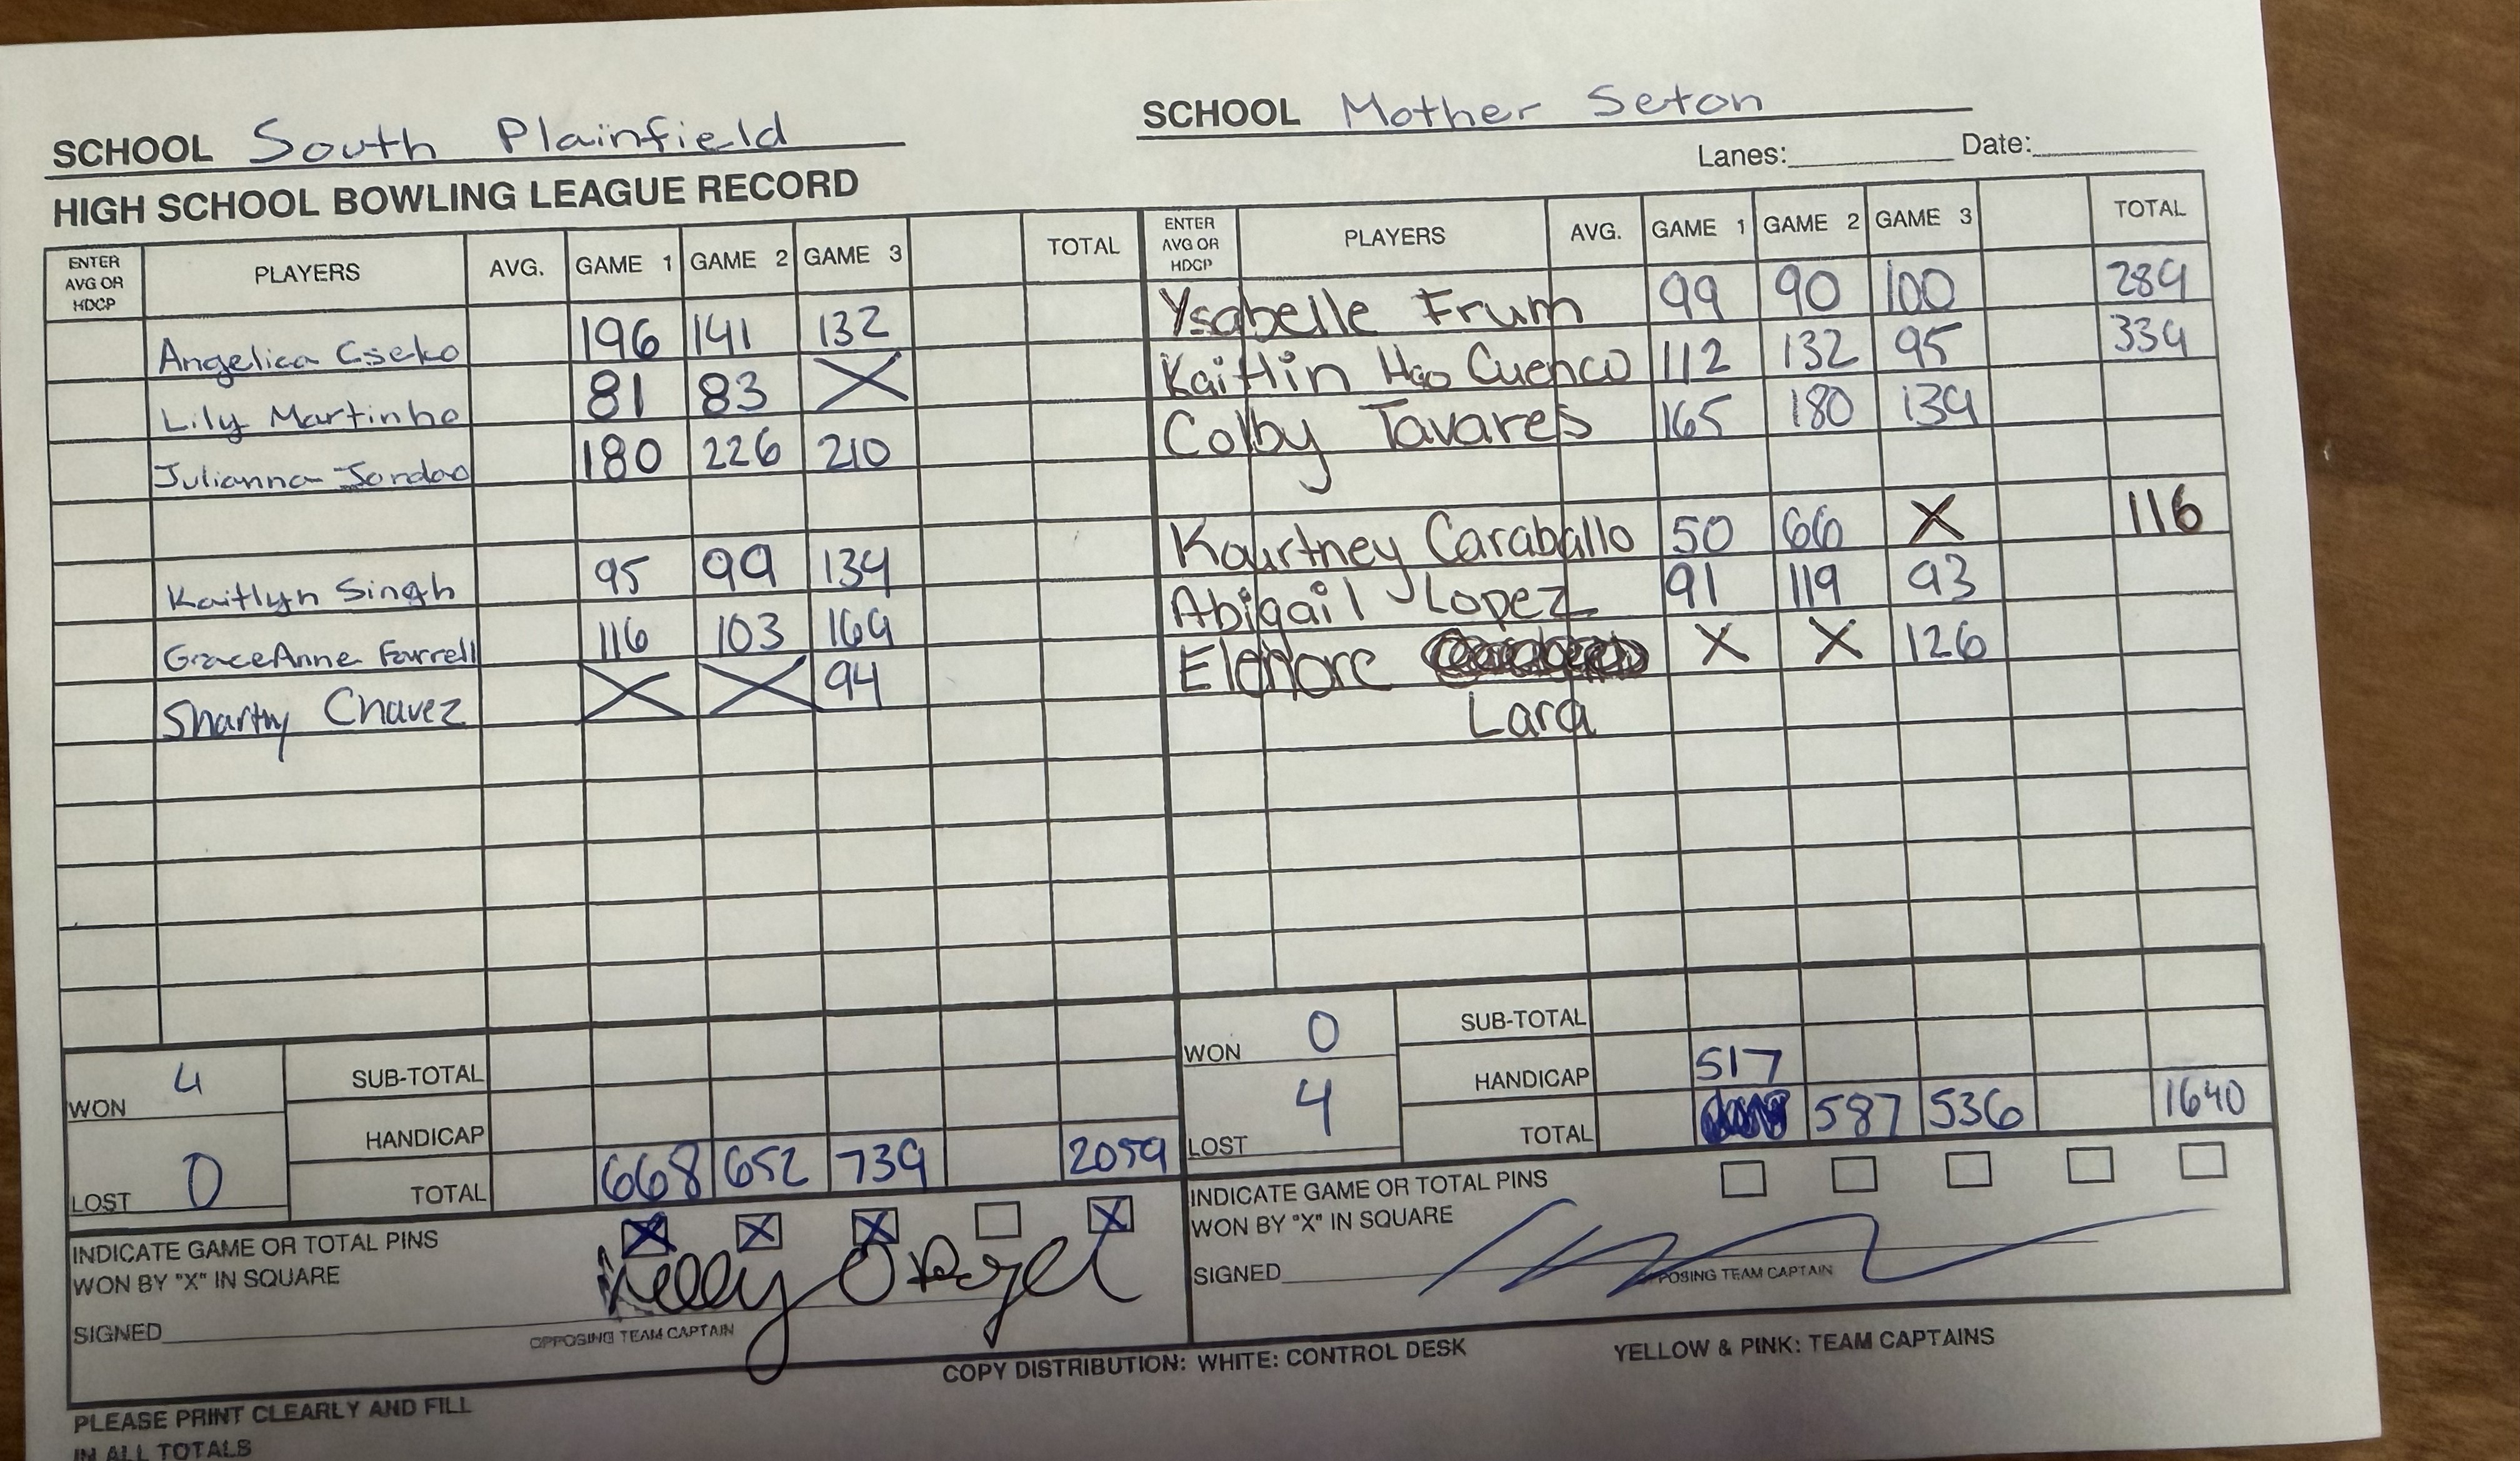 SCHOOL South Plainfield
SCHOOL Mother Seton
Lanes: Date:
HIGH SCHOOL BOWLING LEAGUE RECORD
ENTER AVG OR HDCP PLAYERS AVG. GAME 1 GAME 2 GAME 3 TOTAL
Angelica Cseko 196 141 132
Lily Martinho 81 83 X
Julianna Jordao 180 226 210
Kaitlyn Singh 95 99 134
GraceAnne Farrell 116 103 169
Chavez X X 94
WON 4
LOST 0
SUB-TOTAL
HANDICAP
TOTAL 668 652 739 2059
INDICATE GAME OR TOTAL PINS
WON BY "X" IN SQUARE X X X X
SIGNED
OPPOSING TEAM CAPTAIN
ENTER AVG OR HDCP PLAYERS AVG. GAME 1 GAME 2 GAME 3 TOTAL
Ysabelle Frum 99 90 100 289
Kaitlin Hao Cuenco 112 132 95 339
Colby Tavares 165 180 139
Kourtney Caraballo 50 66 X 116
Abigail Lopez 91 119 93
Elonore X X 126
Lara
WON 0
LOST 4
SUB-TOTAL
HANDICAP 517
TOTAL 587 536 1640
INDICATE GAME OR TOTAL PINS
WON BY "X" IN SQUARE
SIGNED
OPPOSING TEAM CAPTAIN
COPY DISTRIBUTION: WHITE: CONTROL DESK YELLOW & PINK: TEAM CAPTAINS
PLEASE PRINT CLEARLY AND FILL
IN ALL TOTALS